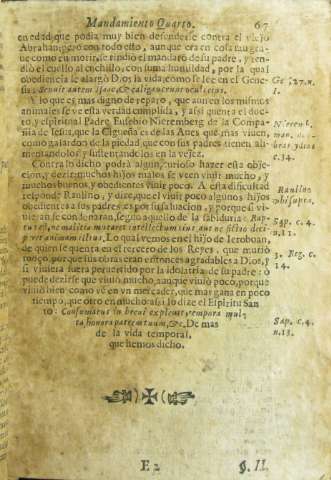 Mandamiento Quarto. 67
en edad que podia muy bien defenderse contra el viejo
Abrahan; pero con todo esto, aunque era en cosa tan gra-
ue como en morir, se rindio el mandato de su padre, y ten-
dio el cuello al cuchillo, con suma humildad, por la qual
obediencia le alargò Dios la vida, como se lee en el Gene-
sis: Senuit autem Isaac, & caligauerunt oculi eius.
Y lo que es mas digno de reparo, que aun en los mismos
animales se ve esta verdad cumplida, y assi quenta el doc-
to, y espiritual Padre Eusebio Nieremberg de la Compa-
ñia de Iesus, que la Cigueña es de las Aues que mas viuen,
como galardon de la piedad, que con sus padres tienen ali-
mentandolos, y sustentandolos en la vejez.
Contra lo dicho podrà algun curioso hazer esta obje-
cion, y dezir: muchos hijos malos se veen viuir mucho, y
muchos buenos, y obedientes viuir poco. A esta dificultad
responde Raulino, y dize, que el viuir poco algunos hijos
obedientes a los padres es por su saluacion, y porque si vi-
uieran se condenaran, segun aquello de la sabiduria: Rap-
tus est, ne malitia mutaret intellectum eius aut ne fictio deci-
peret animam illius. Lo qual vemos en el hijo de Ieroboan,
de quien se quenta en el tercero de los Reyes, que murió
moço, porque sus obras eran entonces agradables a Dios, y
si viuiera fuera peruertido por la idolatria de su padre: ò
puede dezirse que viuiò mucho, aunque viuiò poco, porque
viuiò bien como vè en vn mercader, que mas gana en poco
tiempo, que otro en mucho assi lo dize el Espiritu San
to: Consumatus in breui expleuit tempora mul-
ta, honora patrem tuum, &c. De mas
de la vida temporal,
que hemos dicho.
Ge. 27. n.
1.
Nieremb.
c. 34.
Raulino
Sap. c. 4.
n. 11.
3. Reg. c.
14.
Sap. c. 4.
n. 13.
E 2 §. II.